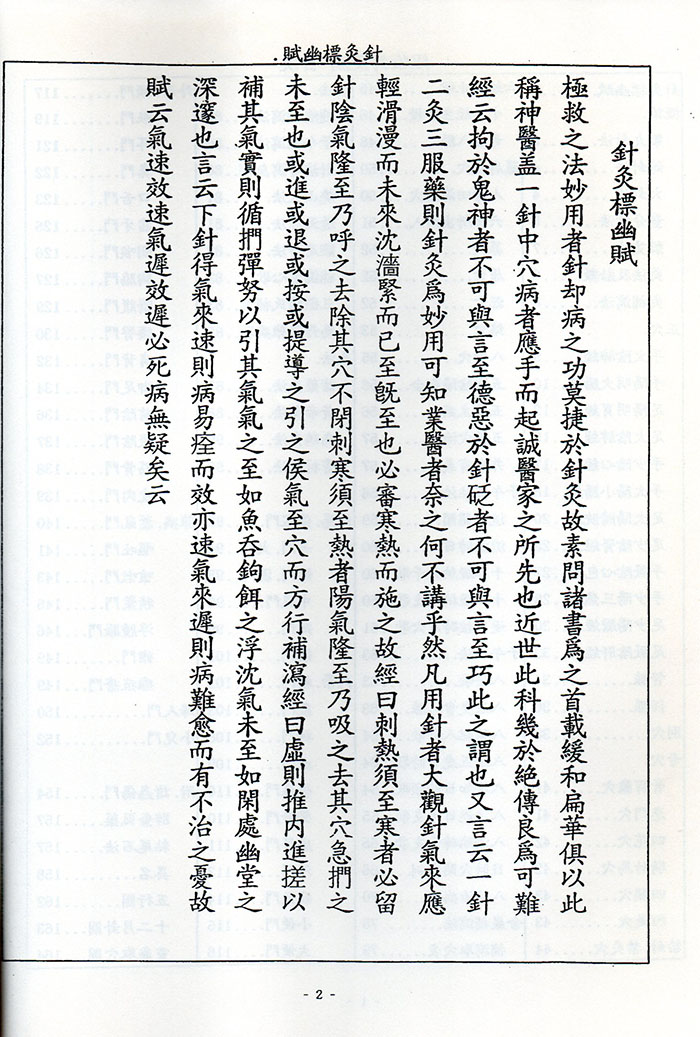 針灸標幽賦.
針灸標幽賦
極救之法妙用者針却病之功莫捷於針灸故素問諸書爲之首載緩和扁華俱以此
稱神醫盖 針中穴病者應手而起誠醫家之所先也近世此科幾於絶傳良爲可難
經云拘於鬼神者不可與言至德惡於針砭者不可與言至巧此之謂也又言云 針
二灸三服藥則針灸爲妙用可知業醫者奈之何不講乎然凡用針者大觀針氣來應
輕滑漫而未來沈濇緊而已至旣至也必審寒熱而施之故經曰刺熱須至寒者必留
針陰氣隆至乃呼之去除其穴不閉刺寒須至熱者陽氣隆至乃吸之去其穴急捫之
未至也或進或退或按或提導之引之侯氣至穴而方行補瀉經曰虛則推内進搓以
補其氣實則循捫彈努以引其氣氣之至如魚呑鉤餌之浮沈氣未至如閑處幽堂之
深邃也言云下針得氣來速則病易痊而效亦速氣來遲則病難愈而有不治之憂故
賦云氣速效速氣遲效遲必死病無疑矣云
- 2 -